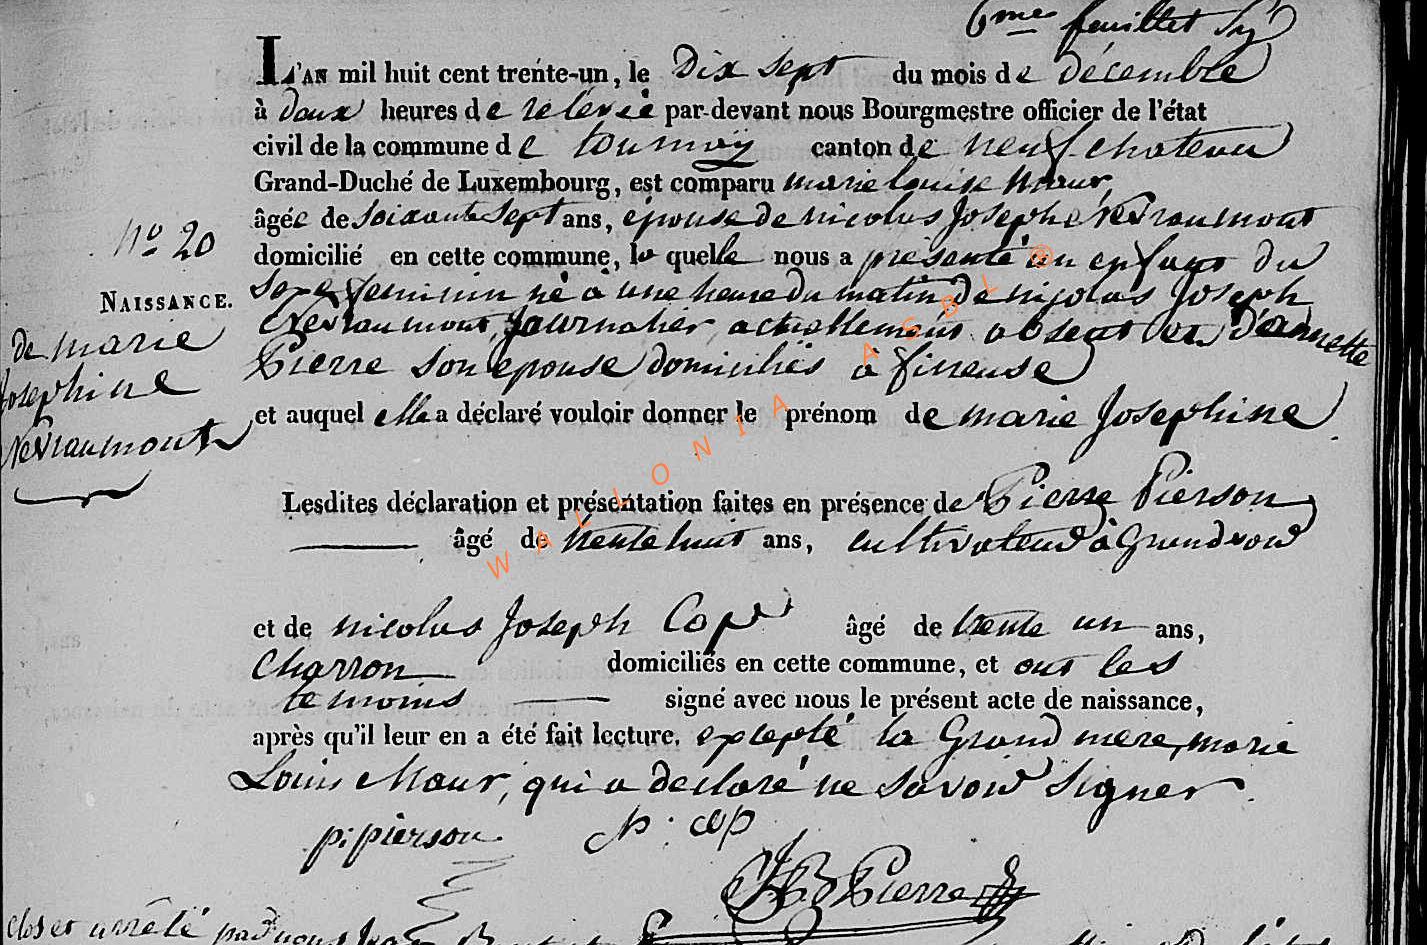 6me feuillet
L'AN mil huit cent trente-un, le Dix sept du mois de décembre
à deux heures de relevée par-devant nous Bourgmestre officier de l'état
civil de la commune de tournay canton de neufchateau
Grand-Duché de Luxembourg, est comparu marie louise maur,
âgée de soixante sept ans, épouse de nicolas Joseph Nevraumont
domicilié en cette commune, la quelle nous a présenté un enfant du
sexe feminin né a une heure du matin de nicolas Joseph
Nevraumont, Journalier, actuellement absent et d'annette
Pierre son epouse domiciliés à fineuse
et auquel elle a déclaré vouloir donner le prénom de marie Josephine
No 20
NAISSANCE.
de marie
Josephine
Nevraumont
Lesdites déclaration et présentation faites en présence de Pierre Pierson
âgé de trente huit ans, cultivateur à Grandvoir
et de nicolas Joseph Cop âgé de trente un ans,
Charron domiciliés en cette commune, et ont les
temoins signé avec nous le présent acte de naissance,
après qu'il leur en a été fait lecture. excepté la Grand mere, marie
Louis Maur, qui a declaré ne savoir signer.
p: pierson N: cop
JB Pierre
Clos et arrêté par nous
WALLONIA ASBL ®